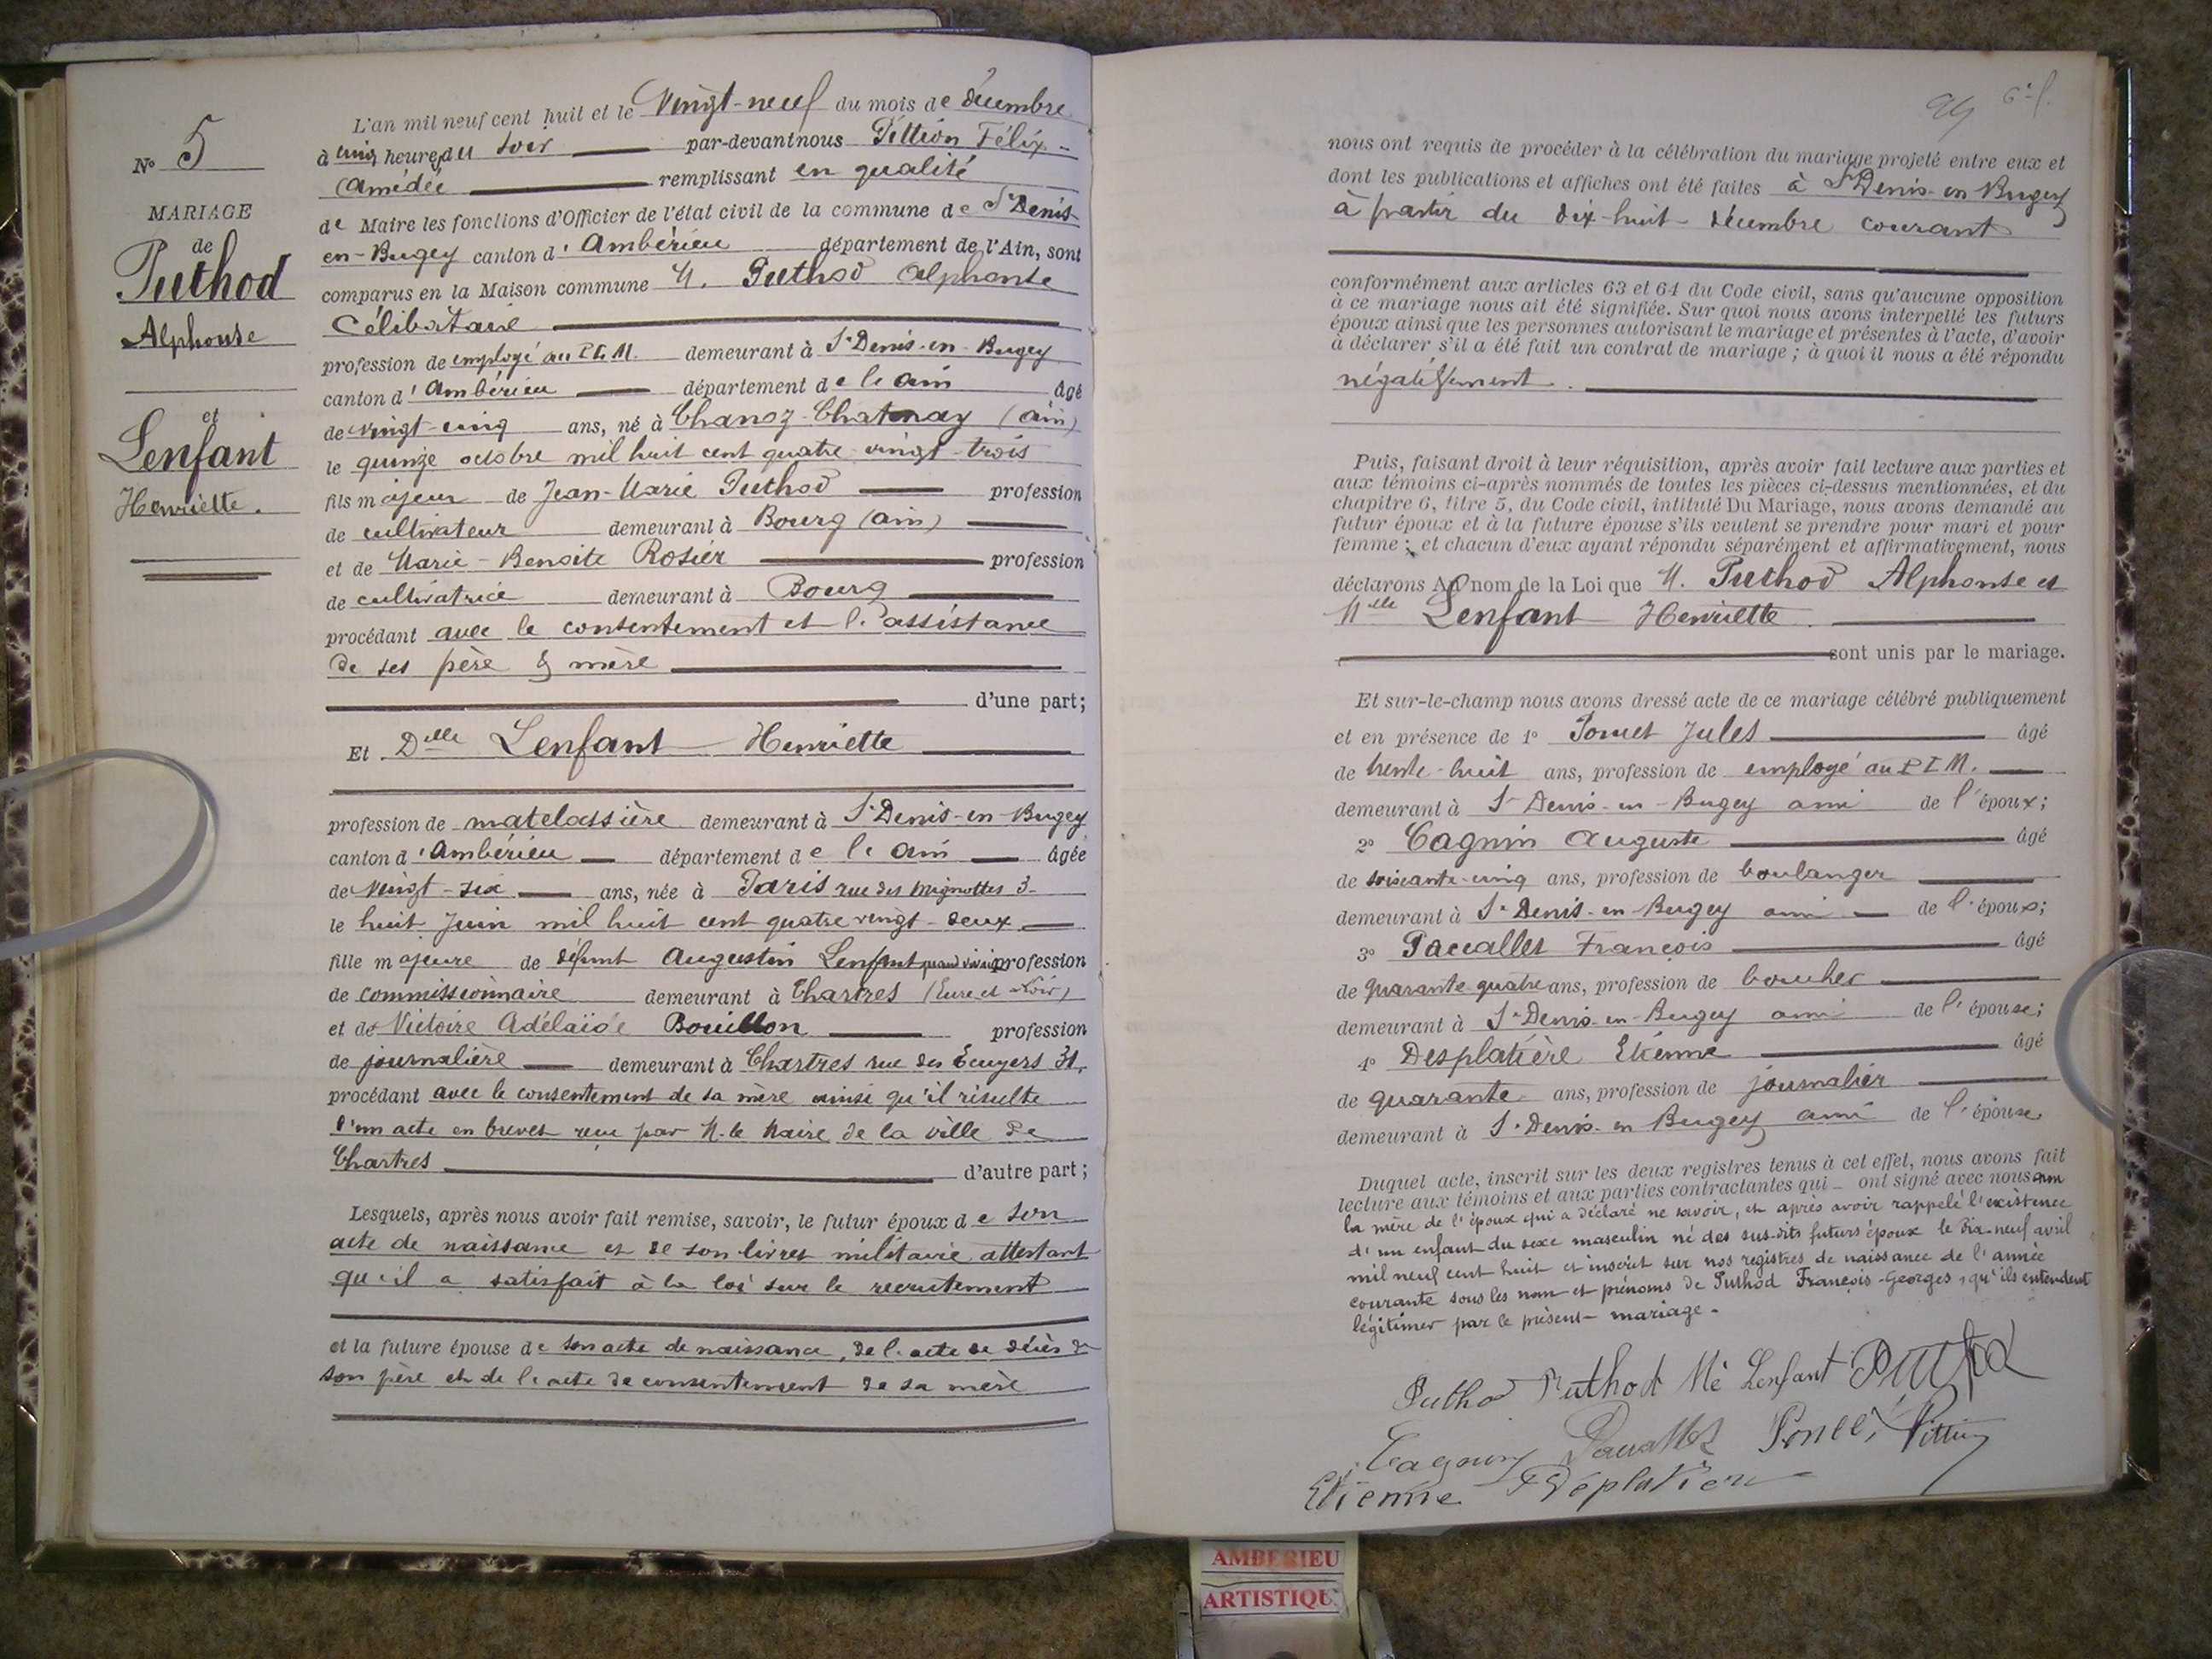 N° 5
MARIAGE
de
Puthod
Alphonse
et
Lenfant
Henriette.
L'an mil neuf cent huit et le Vingt-neuf du mois de décembre
à cinq heures du soir par-devant nous Pittion Félix-
Amédée remplissant en qualité
de Maire les fonctions d'Officier de l'état civil de la commune de St Denis-
en-Bugey canton d'Ambérieu département de l'Ain, sont
comparus en la Maison commune M. Puthod Alphonse
Célibataire
profession de employé au P.L.M. demeurant à St Denis-en-Bugey
canton d'Ambérieu département de l'ain âgé
de vingt-cinq ans, né à Chanoz-Chatenay (ain)
le quinze octobre mil huit cent quatre-vingt-trois
fils majeur de Jean-Marie Puthod profession
de cultivateur demeurant à Bourg (ain)
et de Marie-Benoite Rosier profession
de cultivatrice demeurant à Bourg
procédant avec le consentement et l'assistance
de ses père & mère
d'une part;
Et Delle Lenfant Henriette
profession de matelassière demeurant à St Denis-en-Bugey
canton d'Ambérieu département de l'ain âgée
de vingt-six ans, née à Paris rue des Mignottes 3
le huit Juin mil huit cent quatre vingt-deux
fille majeure de défunt Augustin Lenfant quand vivait profession
de commissionnaire demeurant à Chartres (Eure et Loir)
et de Victoire Adélaïde Bouillon profession
de journalière demeurant à Chartres rue des Ecuyers 31,
procédant avec le consentement de sa mère ainsi qu'il résulte
d'un acte en brevet reçu par M. le Maire de la ville de
Chartres d'autre part;
Lesquels, après nous avoir fait remise, savoir, le futur époux de son
acte de naissance et de son livret militaire attestant
qu'il a satisfait à la loi sur le recrutement
et la future épouse de son acte de naissance, de l'acte de décès de
son père et de l'acte de consentement de sa mère
nous ont requis de procéder à la célébration du mariage projeté entre eux et
dont les publications et affiches ont été faites à St Denis-en-Bugey
à partir du dix-huit décembre courant
conformément aux articles 63 et 64 du Code civil, sans qu'aucune opposition
à ce mariage nous ait été signifiée. Sur quoi nous avons interpellé les futurs
époux ainsi que les personnes autorisant le mariage et présentes à l'acte, d'avoir
à déclarer s'il a été fait un contrat de mariage; à quoi il nous a été répondu
négativement.
Puis, faisant droit à leur réquisition, après avoir fait lecture aux parties et
aux témoins ci-après nommés de toutes les pièces ci-dessus mentionnées, et du
chapitre 6, titre 5, du Code civil, intitulé Du Mariage, nous avons demandé au
futur époux et à la future épouse s'ils veulent se prendre pour mari et pour
femme; et chacun d'eux ayant répondu séparément et affirmativement, nous
déclarons Au nom de la Loi que M. Puthod Alphonse et
Melle Lenfant Henriette
sont unis par le mariage.
Et sur-le-champ nous avons dressé acte de ce mariage célébré publiquement
et en présence de 1° Jules âgé
de trente-huit ans, profession de employé au P.L.M.
demeurant à St Denis-en-Bugey ami de l'époux;
2° Cagnin Auguste âgé
de soixante-cinq ans, profession de boulanger
demeurant à St Denis-en-Bugey ami de l'époux;
3° Paccallet François âgé
de quarante quatre ans, profession de boucher
demeurant à St Denis-en-Bugey ami de l'épouse;
4° Desplatière Etienne âgé
de quarante ans, profession de journalier
demeurant à St Denis-en Bugey ami de l'épouse
Duquel acte, inscrit sur les deux registres tenus à cet effet, nous avons fait
lecture aux témoins et aux parties contractantes qui ont signé avec nous non
la mère de l'époux qui a déclaré ne savoir, et après avoir rappelé l'existence
d'un enfant du sexe masculin né des sus-dits futurs époux le dix-neuf avril
mil neuf cent huit et inscrit sur nos registres de naissance de l'année
courante sous les nom et prénoms de Puthod François-Georges, qu'ils entendent
légitimer par le présent mariage.
Puthod Puthod Me Lenfant Puthod
Cagnin Paccallet Pittion
Etienne Déplatière
AMBERIEU
ARTISTIQUE